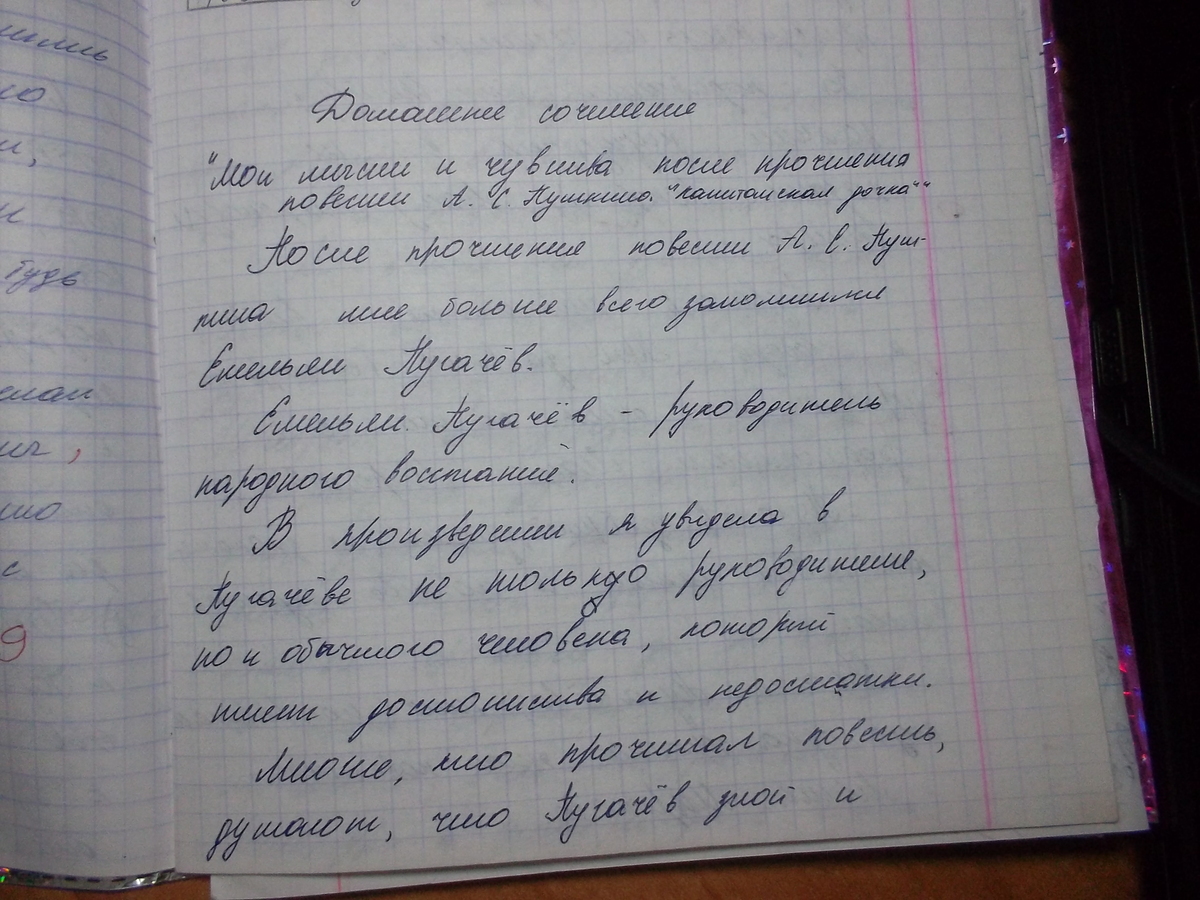 Домашнее сочинение
"Мои мысли и чувства после прочтения
повести А. С. Пушкина "Капитанская дочка""
После прочтения повести А. С. Пуш-
кина мне больше всего запомнился
Емельян Пугачёв.
Емельян Пугачёв - руководитель
народного восстания.
В произведении я увидела в
Пугачёве не только руководителя,
но и обычного человека, который
имеет достоинства и недостатки.
Многие, кто прочитал повесть,
думают, что Пугачёв злой и
будь
с
9